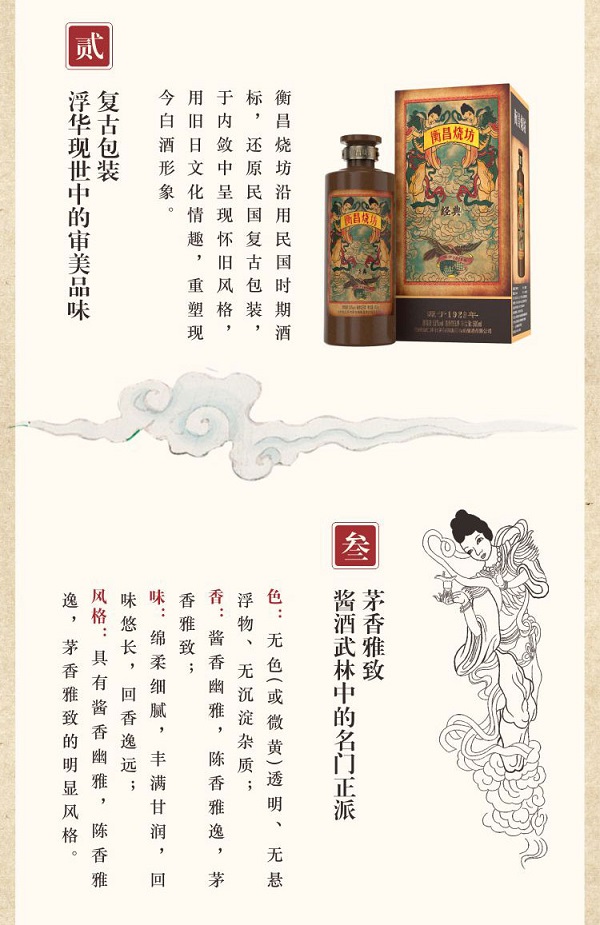 贰
复古包装
浮华现世中的审美品味
衡昌烧坊沿用民国时期酒
标，还原民国复古包装，
于内敛中呈现怀旧风格，
用旧日文化情趣，重塑现
今白酒形象。
衡昌烧坊
经典
衡昌烧坊
经典
源于1929年
叁
茅香雅致
酱酒武林中的名门正派
色：无色(或微黄)透明、无悬
浮物、无沉淀杂质；
香：酱香幽雅，陈香雅逸，茅
香雅致；
味：绵柔细腻，丰满甘润，回
味悠长，回香逸远；
风格：具有酱香幽雅，陈香雅
逸，茅香雅致的明显风格。